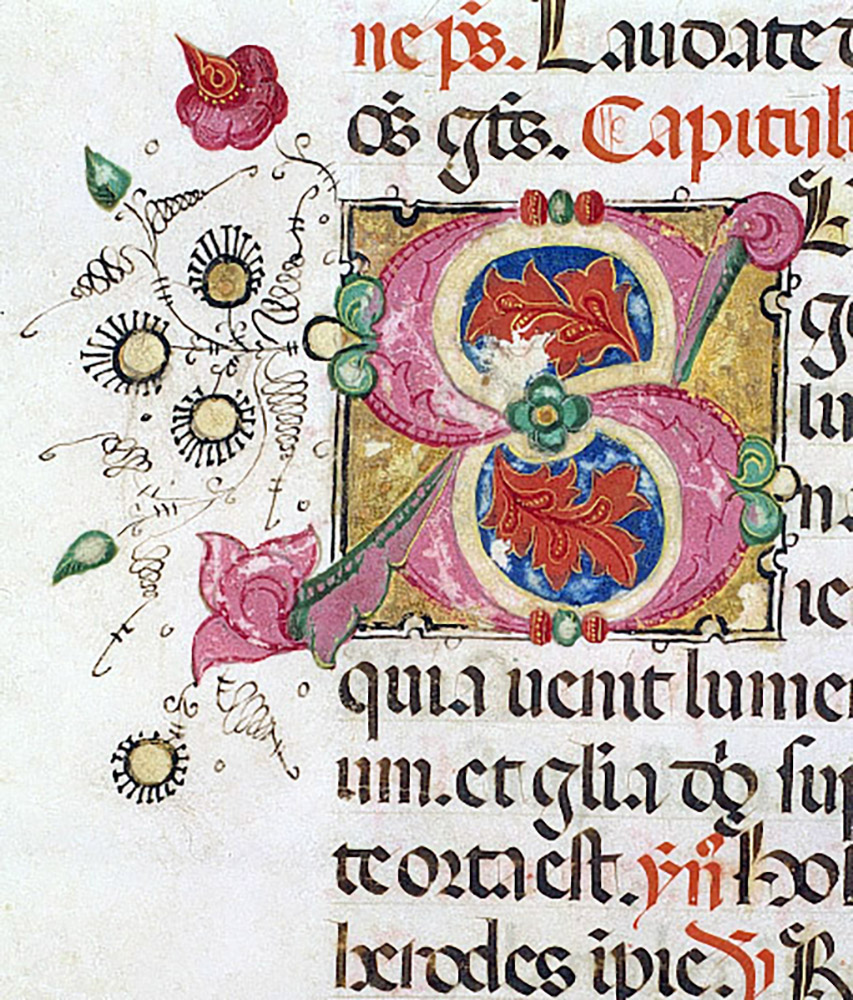 ne ps. Laudate d
os gtes. Capitulu
S
L
ge
lu
ne
ie
quia uenit lume
um. et glia dn sup
te orta est. yn hos
herodes ipie. V R